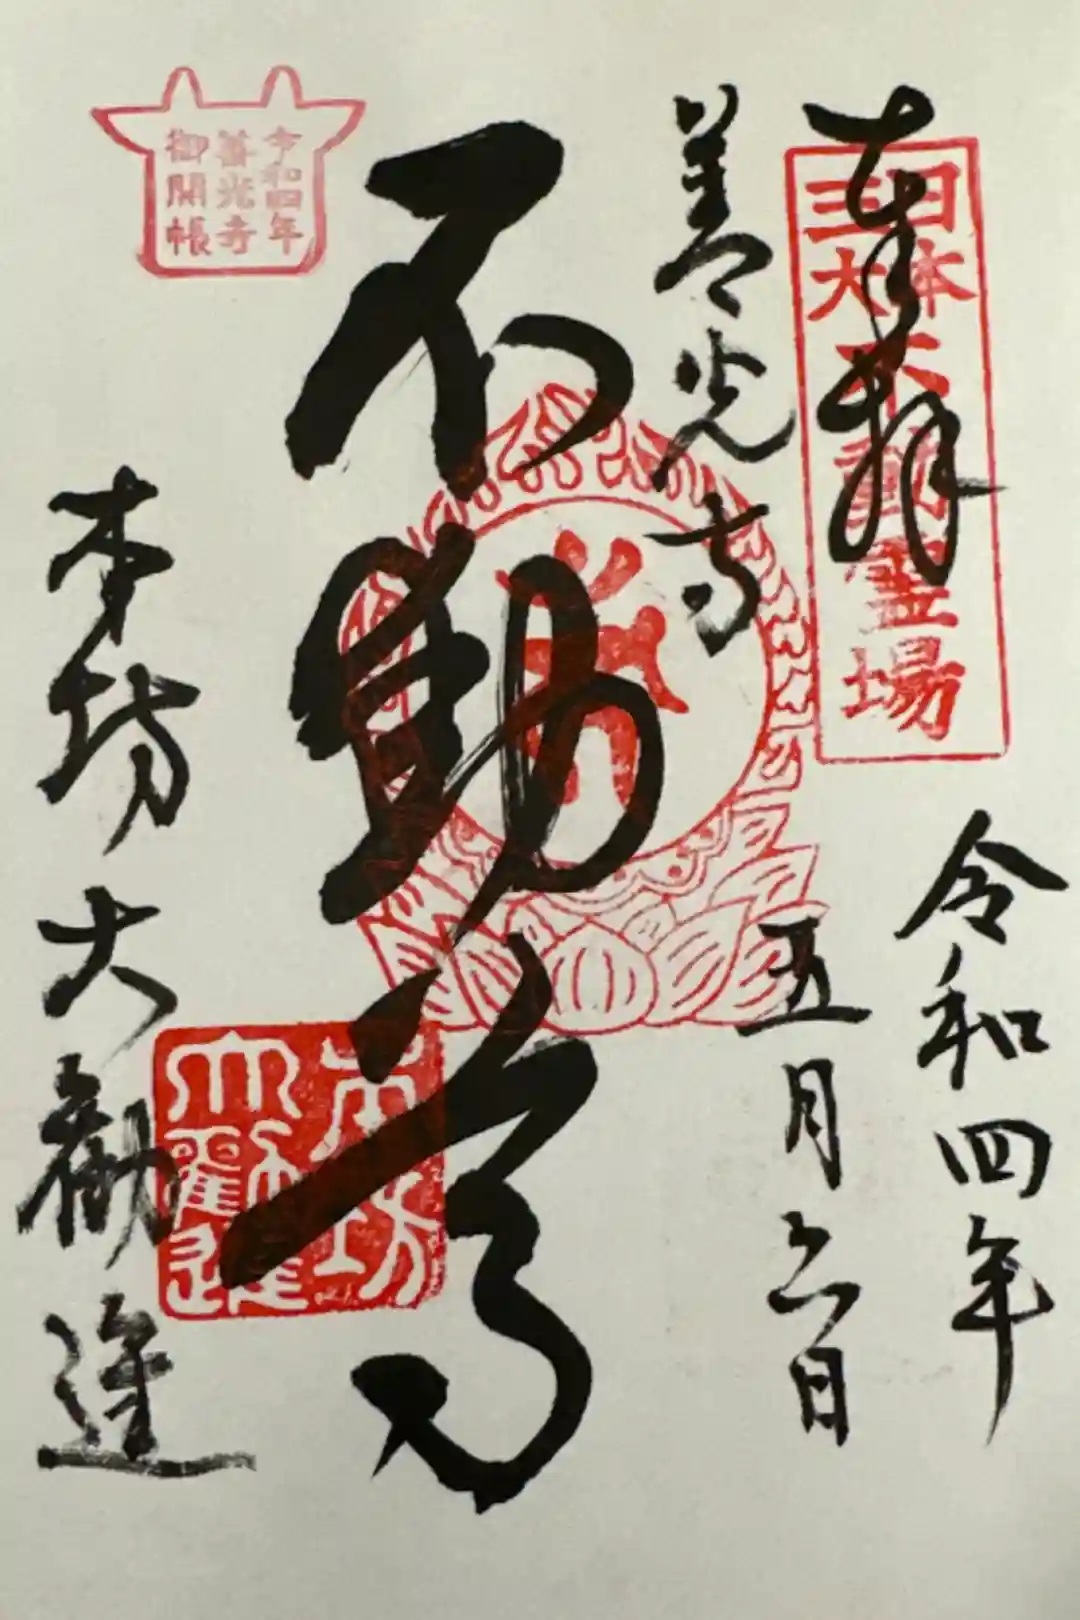 奉拝
日本
三大
不動霊場
令和四年
五月六日
善光寺
不動尊
令和四年
善光寺
御開帳
本坊
大勧進
本坊大勧進